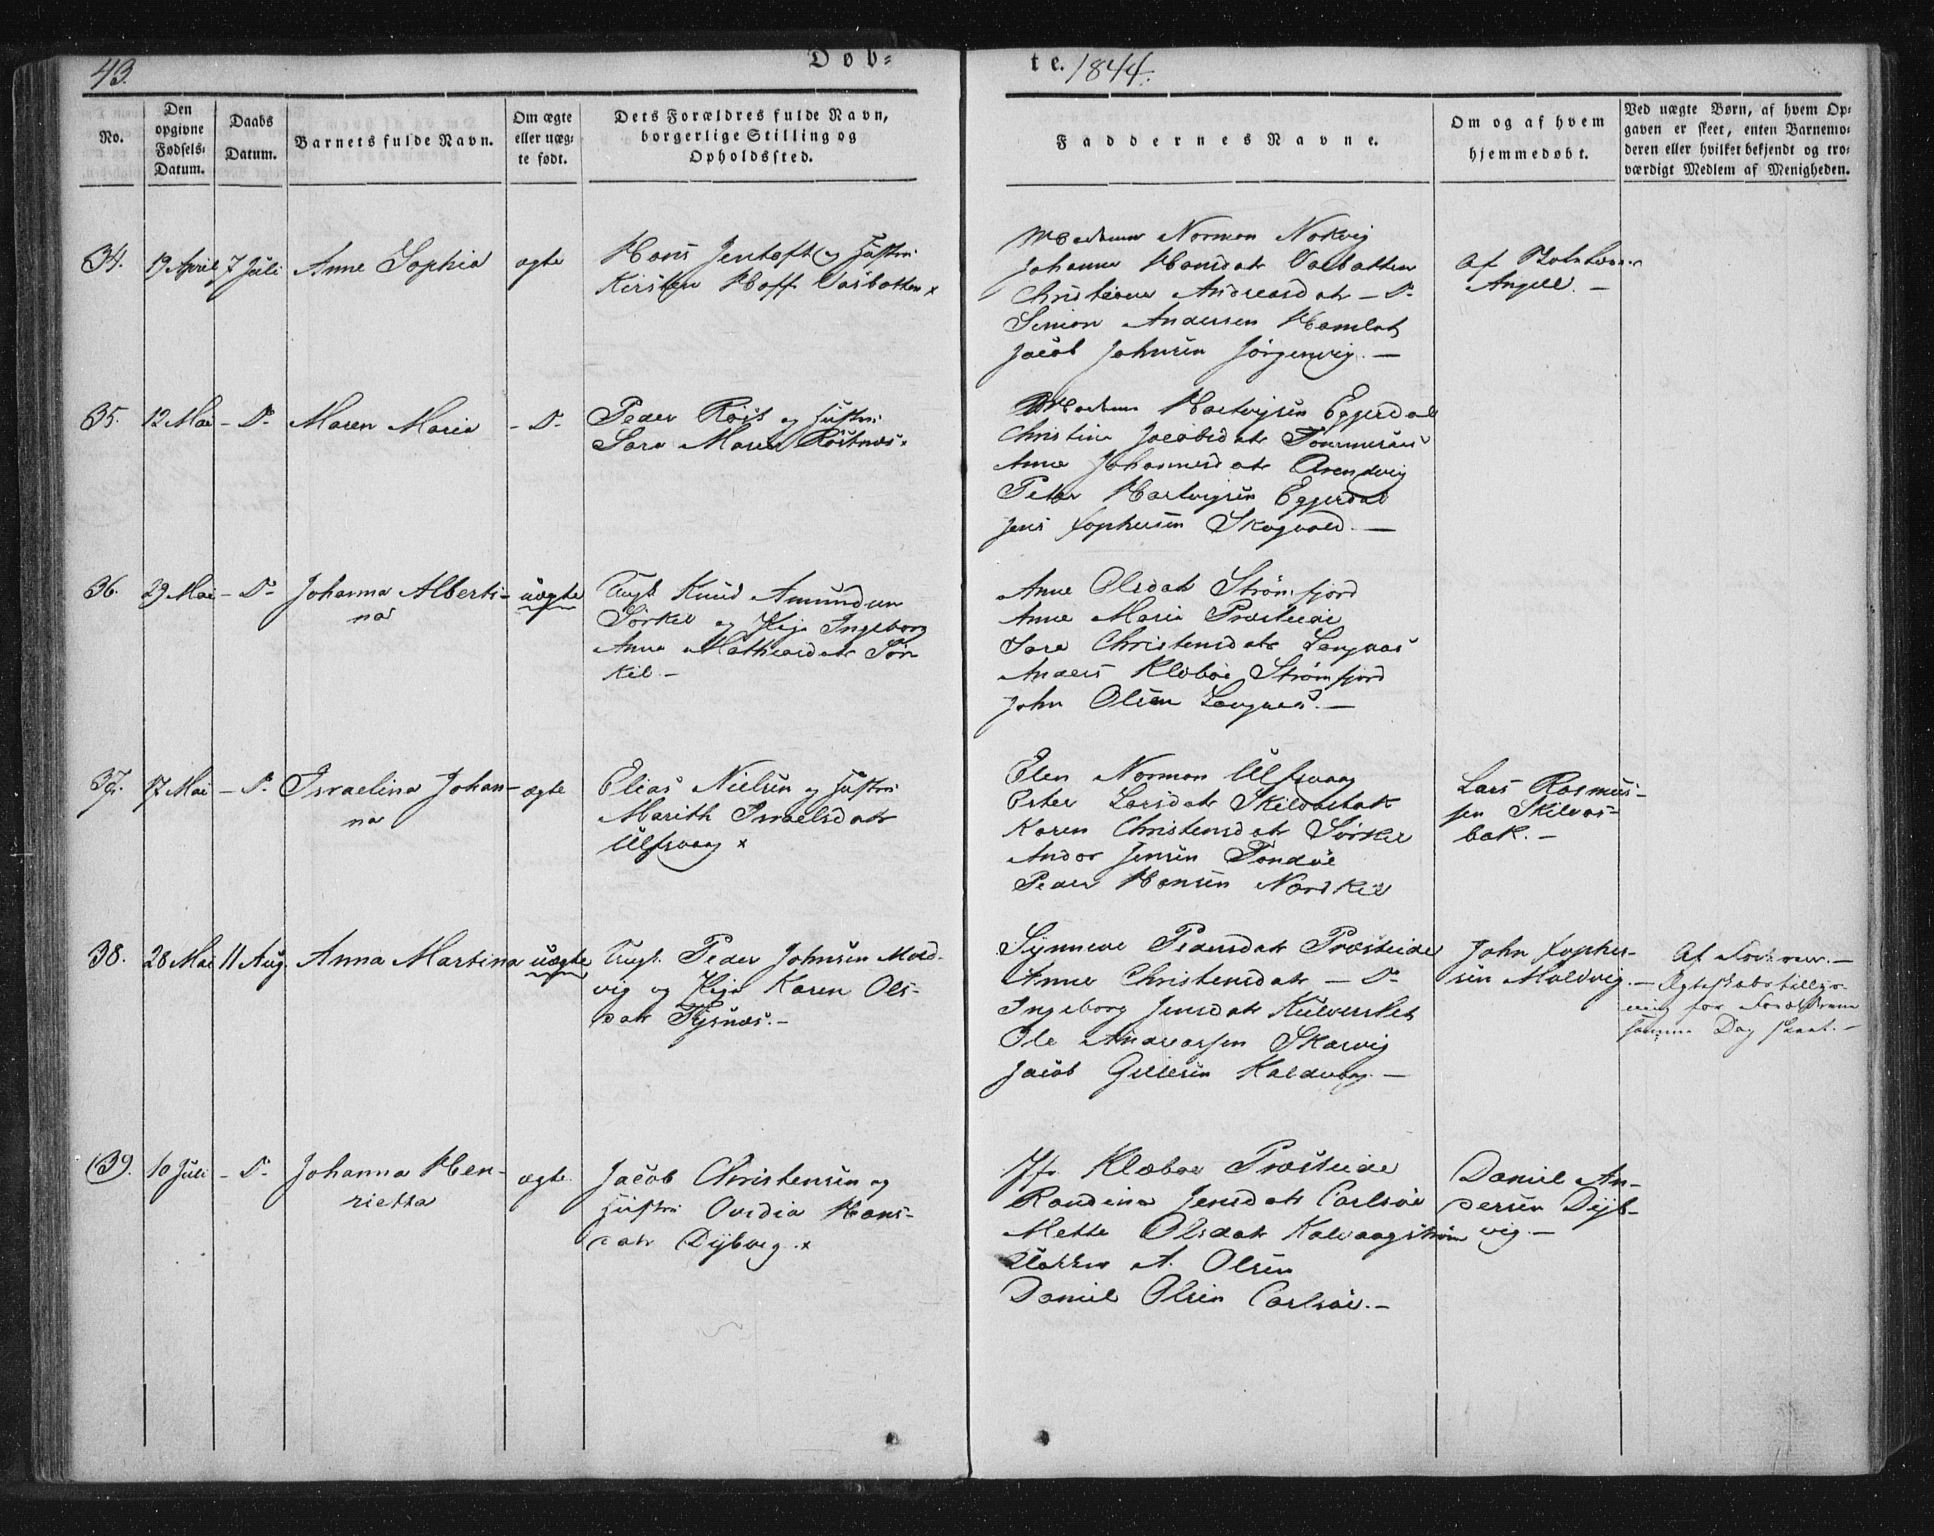 43.
Døb-
te. 1844.
No.
Den opgivne Fødsels-Datum.
Daabs Datum.
Barnets fulde Navn.
Om ægte eller uægte født.
Dets Forældres fulde Navn, borgerlige Stilling og Opholdssted.
Faddernes Navne.
Om og af hvem hjemmedøbt.
Ved uægte Børn, af hvem Op-
gaven er skeet, enten Barnemo-
deren eller hvilket bekjendt og tro-
værdigt Medlem af Menigheden.
34. 19 April 7 Juli Anne Sophia ægte
Hans Jentoft og Hustru
Kirsten Hoff Valbotten x
Madame Norman Nokvig
Johanna Hansdatr Valbotten
Andreasdatr - Do
Simon Andersen Hamlot
Jacob Johnsen Jørgenvig. -
Af
Angell. -
35. 12 Mai - Do Maren Maria - Do
Peder Röst og Hustru
Sara Maria Röstnæs.
Madame Hartvigsen Eggerdal
Christina Jacobsdatr Tommeraas
Anne Johannesdatr
Peter Hartvigsen Eggerdal
Jens Skogvold. -
36. 29 Mai - Do Johanna Alberti-
na
uægte
Ungk. Knud Amundsen
Sörkil og Pige Ingeborg
Anna Mathiasdatr Sör
kil. -
Anne Olsdatr Strömfjord
Anne Maria Præsteide
Sara Christensdatr Langnæs
Anders Klæboe Strömfjord
John Olsen Langnæs. -
37. 17 Mai - Do Israelina Johan-
na
ægte
Elias Nielsen og Hustru
Marith Israelsdatr
Ulfsvaag x
Elen Norman Ulfsvaag
Ester Larsdatr Skilvasbak
Karen Christensdatr Sörkil
Andor Jensen Tondöe
Peder Hansen Nordkil
Lars Rasmus-
sen Skilvas-
bak. -
38. 28 Mai 11 Aug. Anna Martina uægte
Ungk. Peder Johnsen Mold-
vig og Pige Karen Ols-
datr Fysnæs. -
Synneve Pedersdatr Præsteide
Anne Christensdatr - Do
Ingeborg Jensdatr
Ole Andreassen Skarvig
Jacob
John
sen Moldvig. -
Af Fadderen. -
for Forældrene
samme Dag skeet. -
39. 10 Juli - Do Johanna Hen-
rietta
ægte.
Jacob Christensen og
Hustru Ovidia Hans-
datr Dybvig. x
Jfr. Klæboe Præsteide
Randina Jensdatr Carlsöe
Mette Olsdatr Kalvaagström
A. Olsen
Daniel Olsen Carlsöe. -
Daniel An-
dersen Dyb-
vig. -